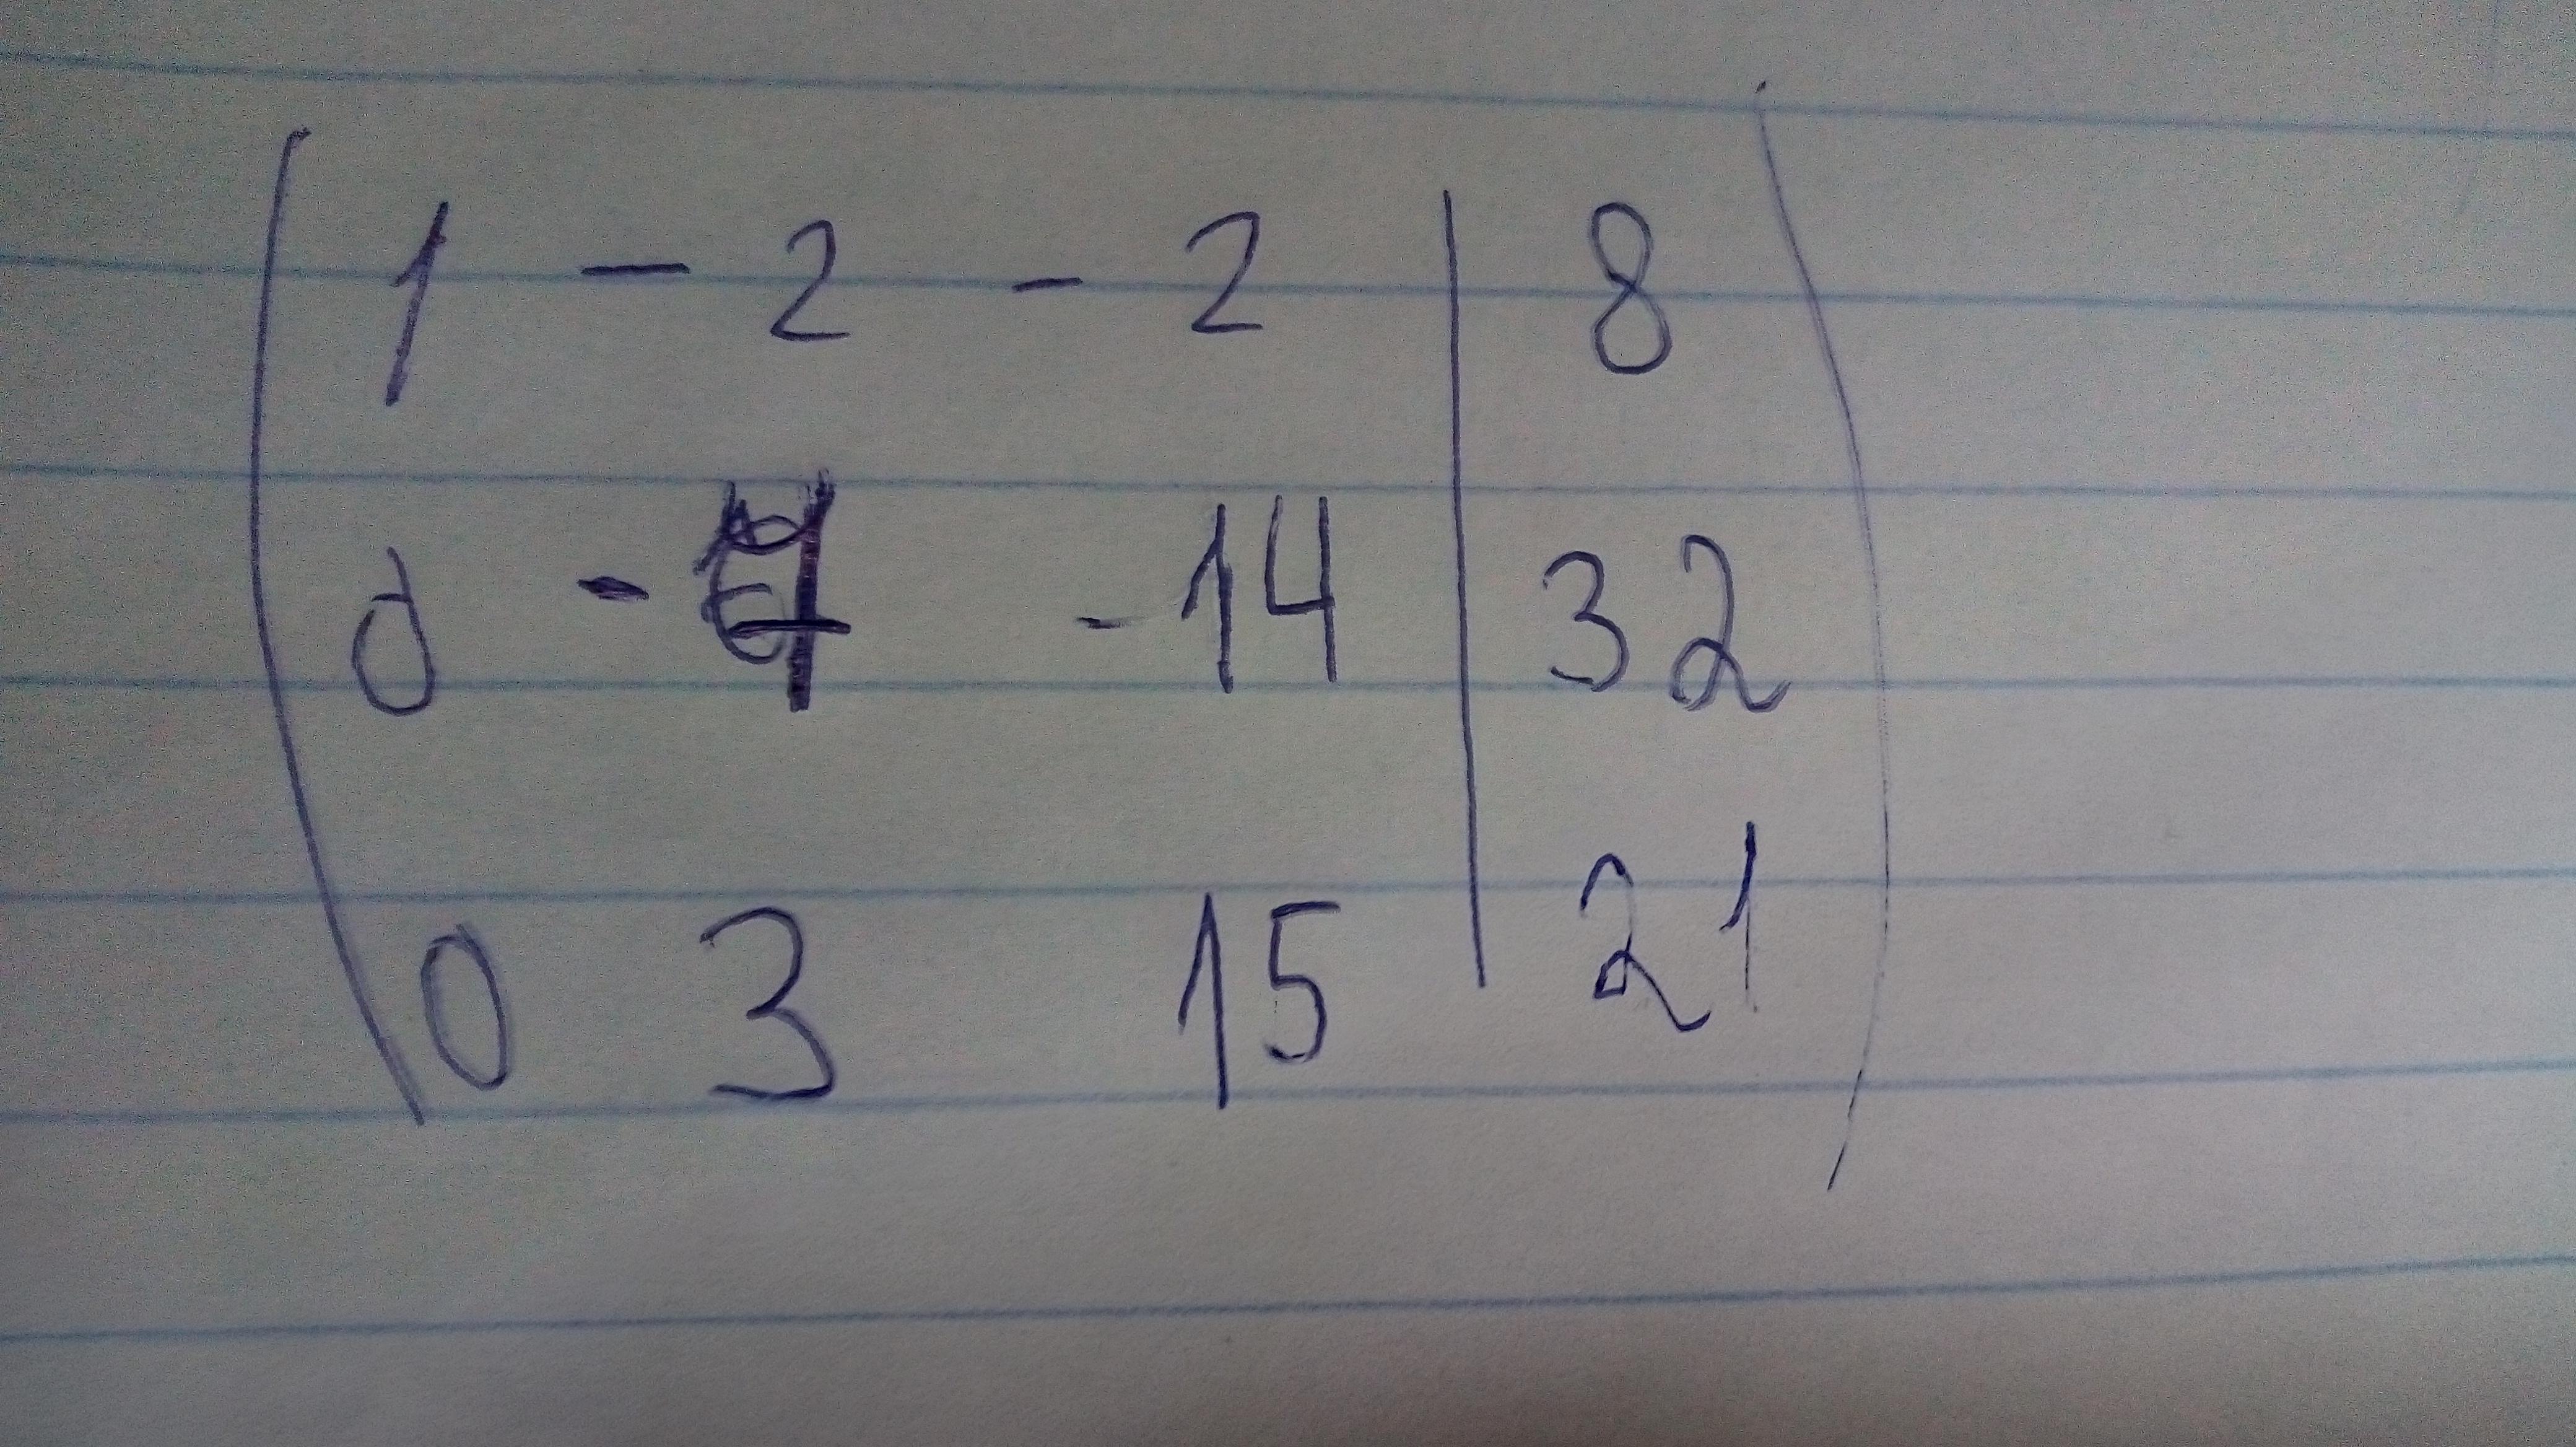 1 -2 -2 | 8
0 - -14 | 32
0 3 15 | 21